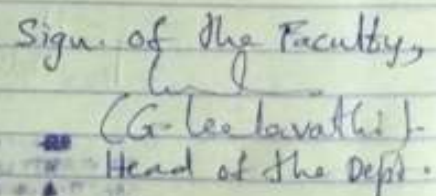 Sign. of the Faculty,
(G. Leelavathi).
Head of the Dept.